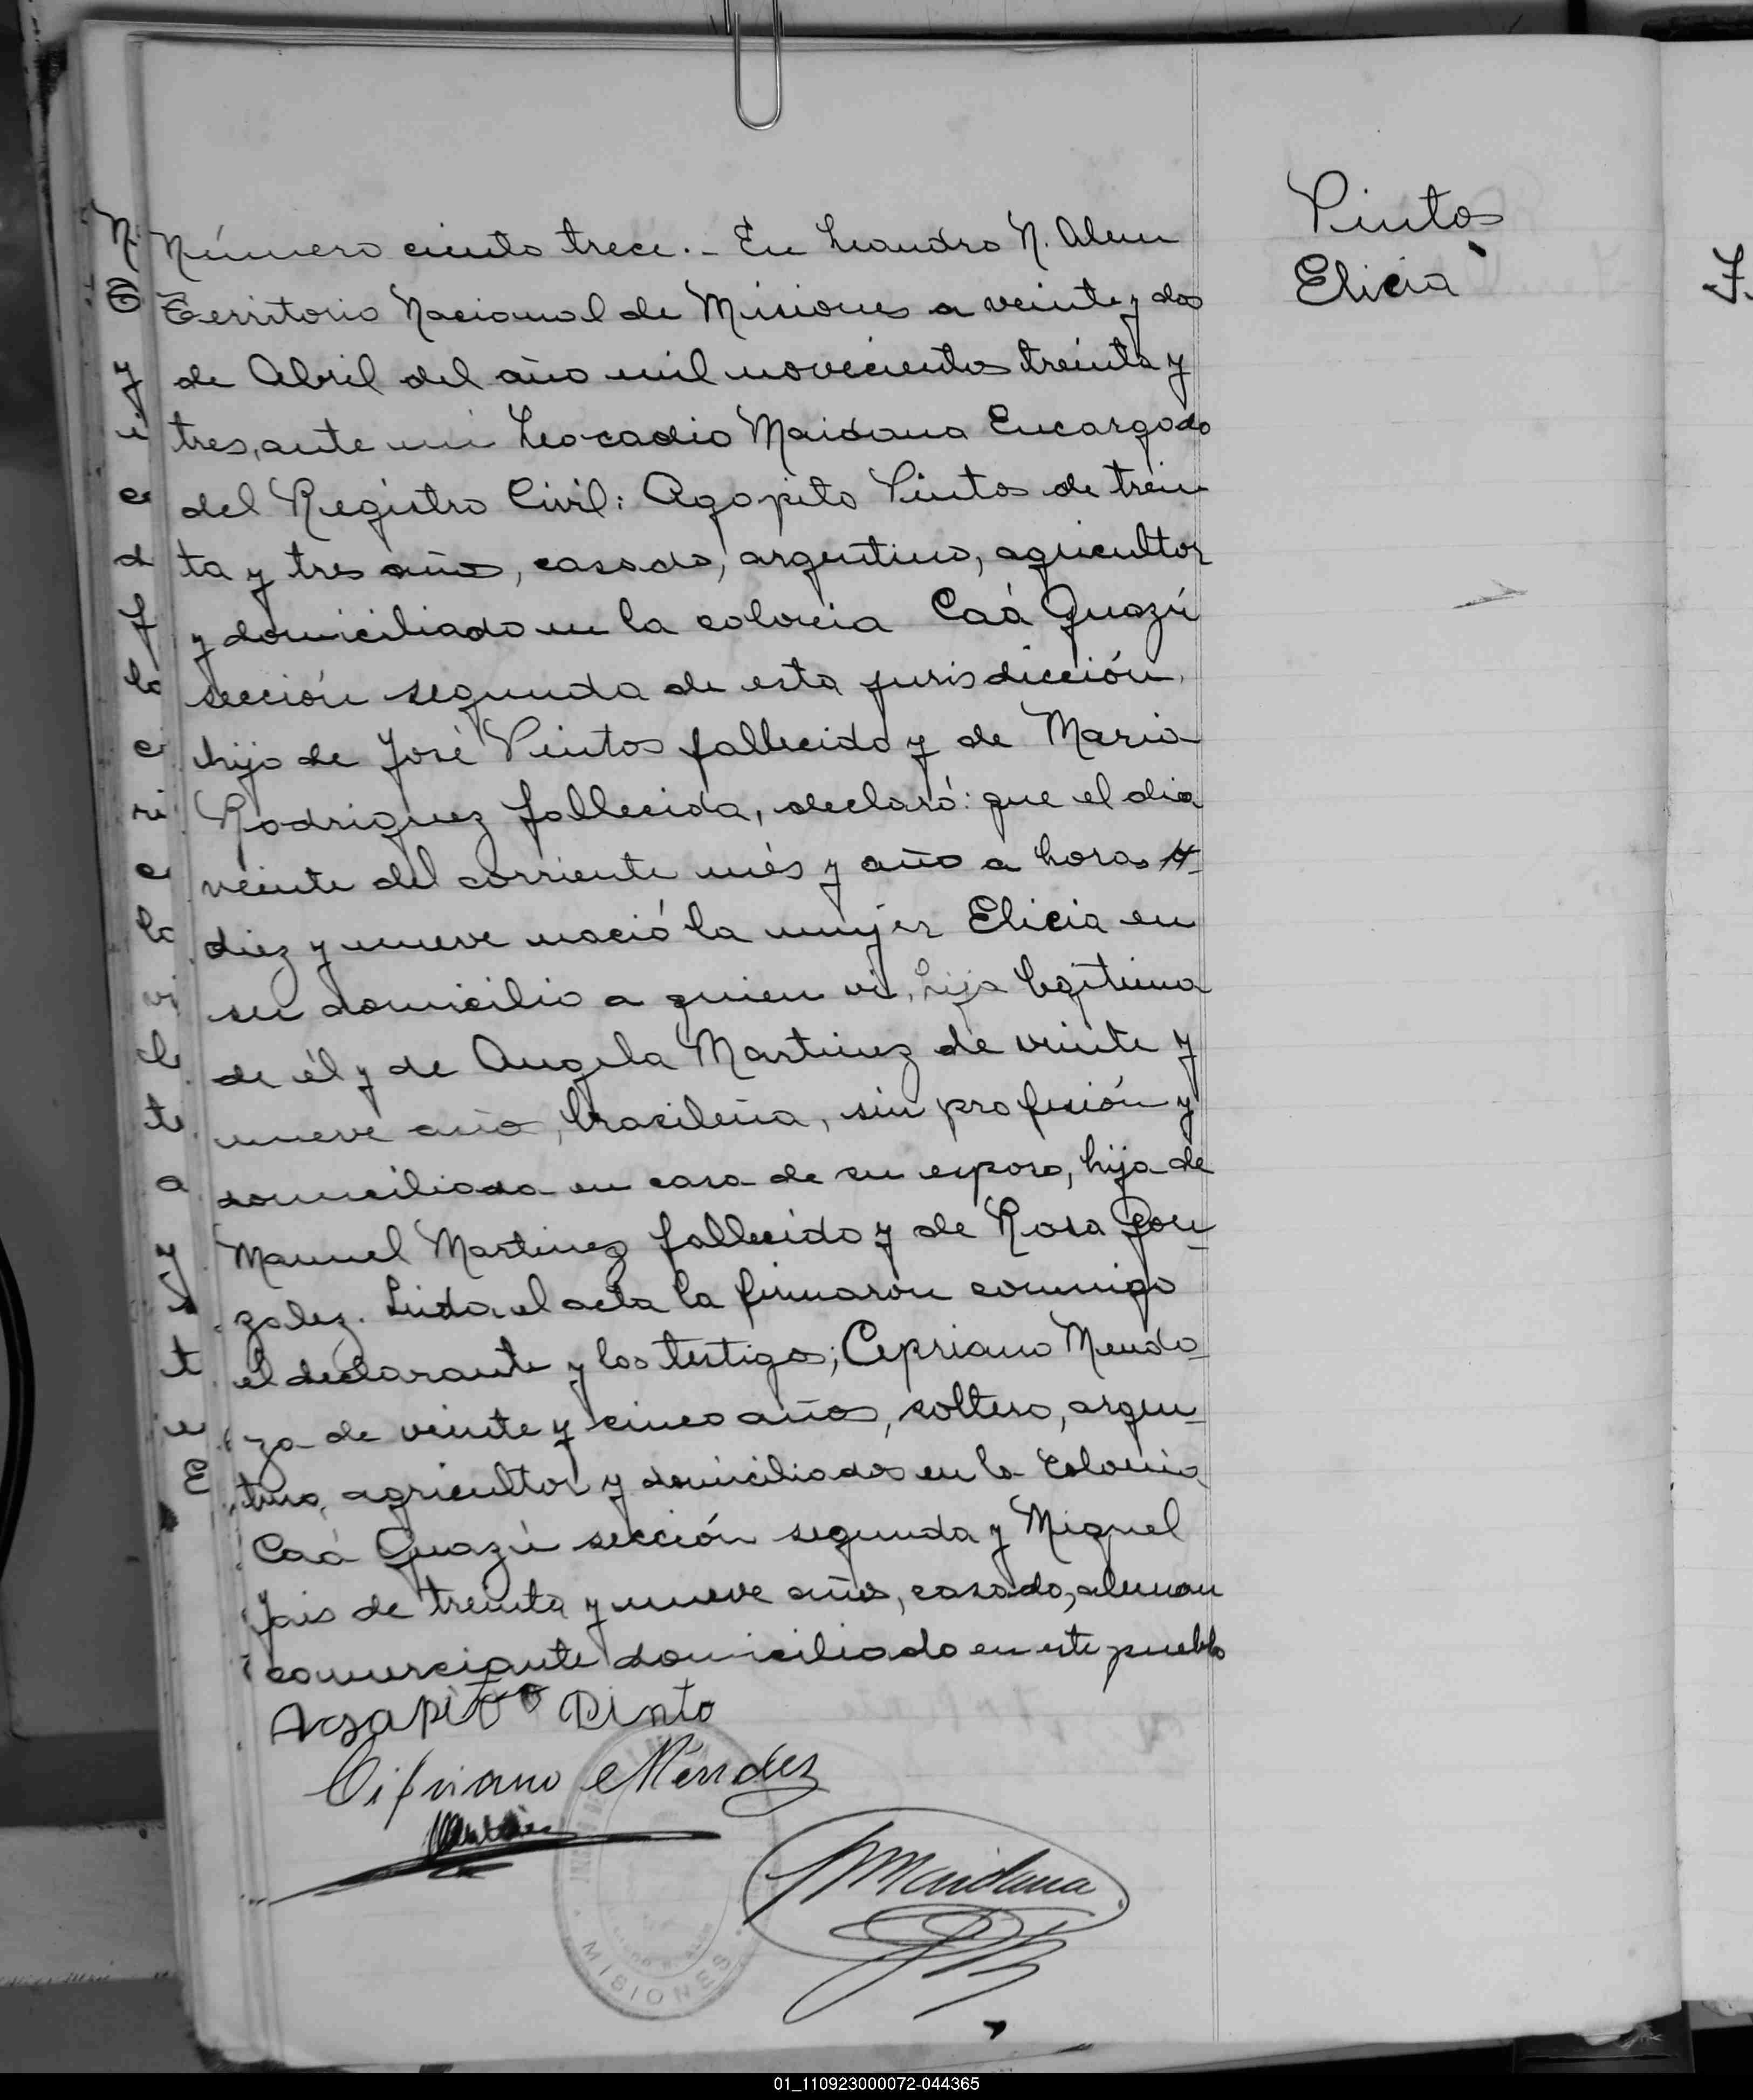 Pintos
Elicia
Número ciento trece.- En Leandro N. Alem
Territorio Nacional de Misiones a veinte y dos
de Abril del año mil novecientos treinta y
tres, ante mi Leocadio Maidana Encargado
del Registro Civil: Agapito Pintos de trein
ta y tres años, casado, argentino, agricultor
y domiciliado en la colonia Caá Guazú
sección segunda de esta jurisdicción,
hijo de José Pintos fallecido y de Maria
Rodriguez fallecida, declaró: que el dia
veinte del corriente més y año a horas
diez y nueve nació la mujer Elicia en
su domicilio a quien vi, hija legitima
de él y de Angela Martinez de veinte y
nueve año, brasileña, sin profesión y
domiciliada en casa de su esposo, hija de
Manuel Martinez fallecido y de Rosa Gon-
zalez. Leida el acta la firmaron conmigo
el declarante y los testigos; Cepriano Mendo-
za de veinte y cinco años, soltero, argen-
tino, agricultor y domiciliados en la Colonia
Caá Guazú sección segunda y Miguel
Jais de treinta y nueve años, casado, aleman
comerciante domiciliado en este pueblo
Agapito Pinto
Cipriano Méndez
Maidana
MISIONES
01_110923000072-044365